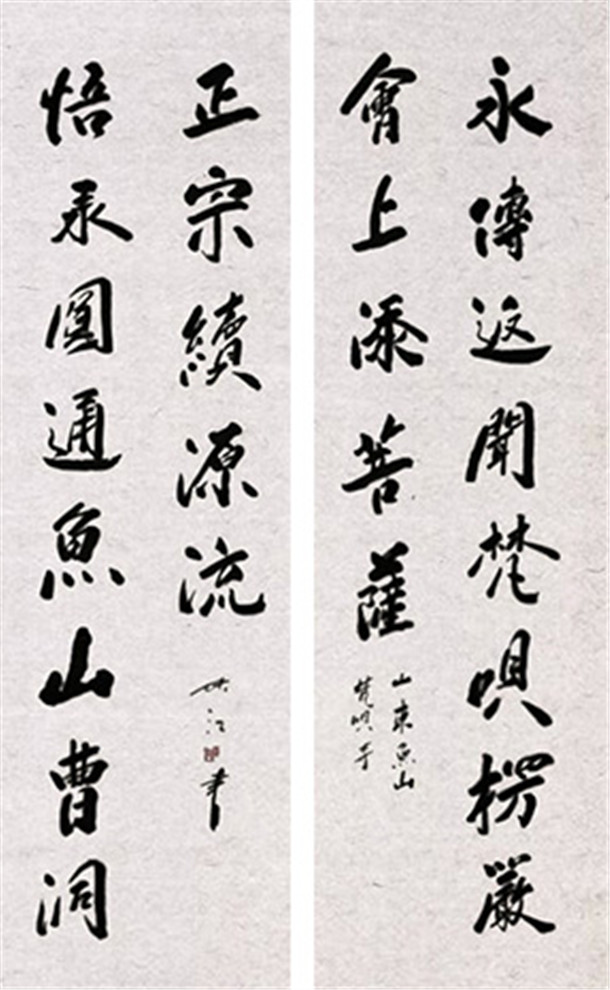 永傳返聞梵唄楞嚴
會上添菩薩
山東魚山
梵唄寺
悟承圓通魚山曹洞
正宗續源流
江書